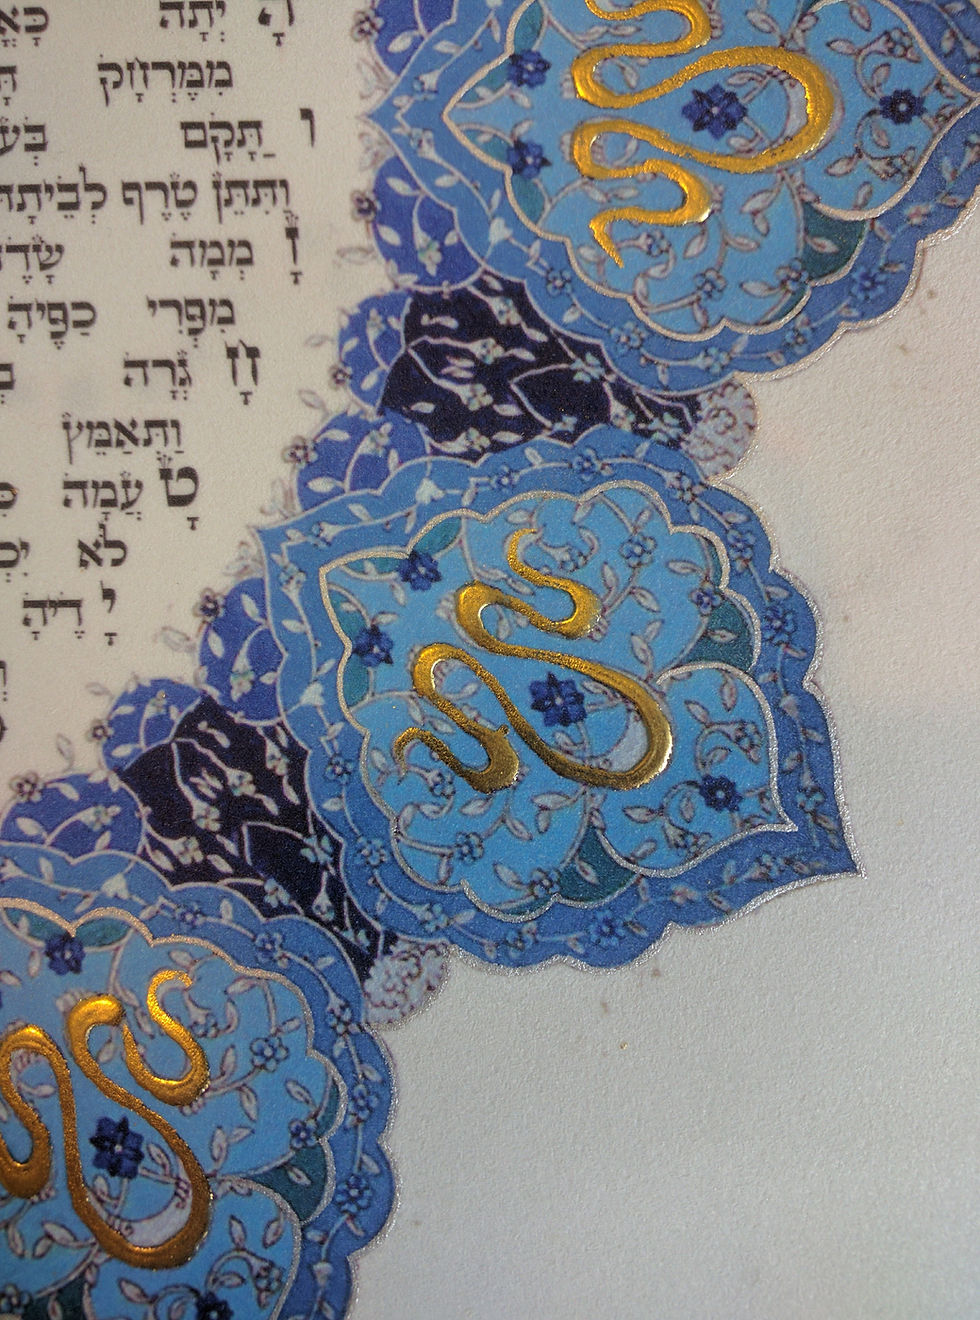 הָ יְתָה
מִמֶּרְחָק
ו ַתָּקָם
וַתִּתֵּן טֶרֶף לְבֵיתָהּ
זָ מְמָה שָׂדֶה
מִפְּרִי כַפֶּיהָ
חָ גְרָה
וַתְּאַמֵּץ
טָ עֲמָה
לֹא
יָ דֶיהָ